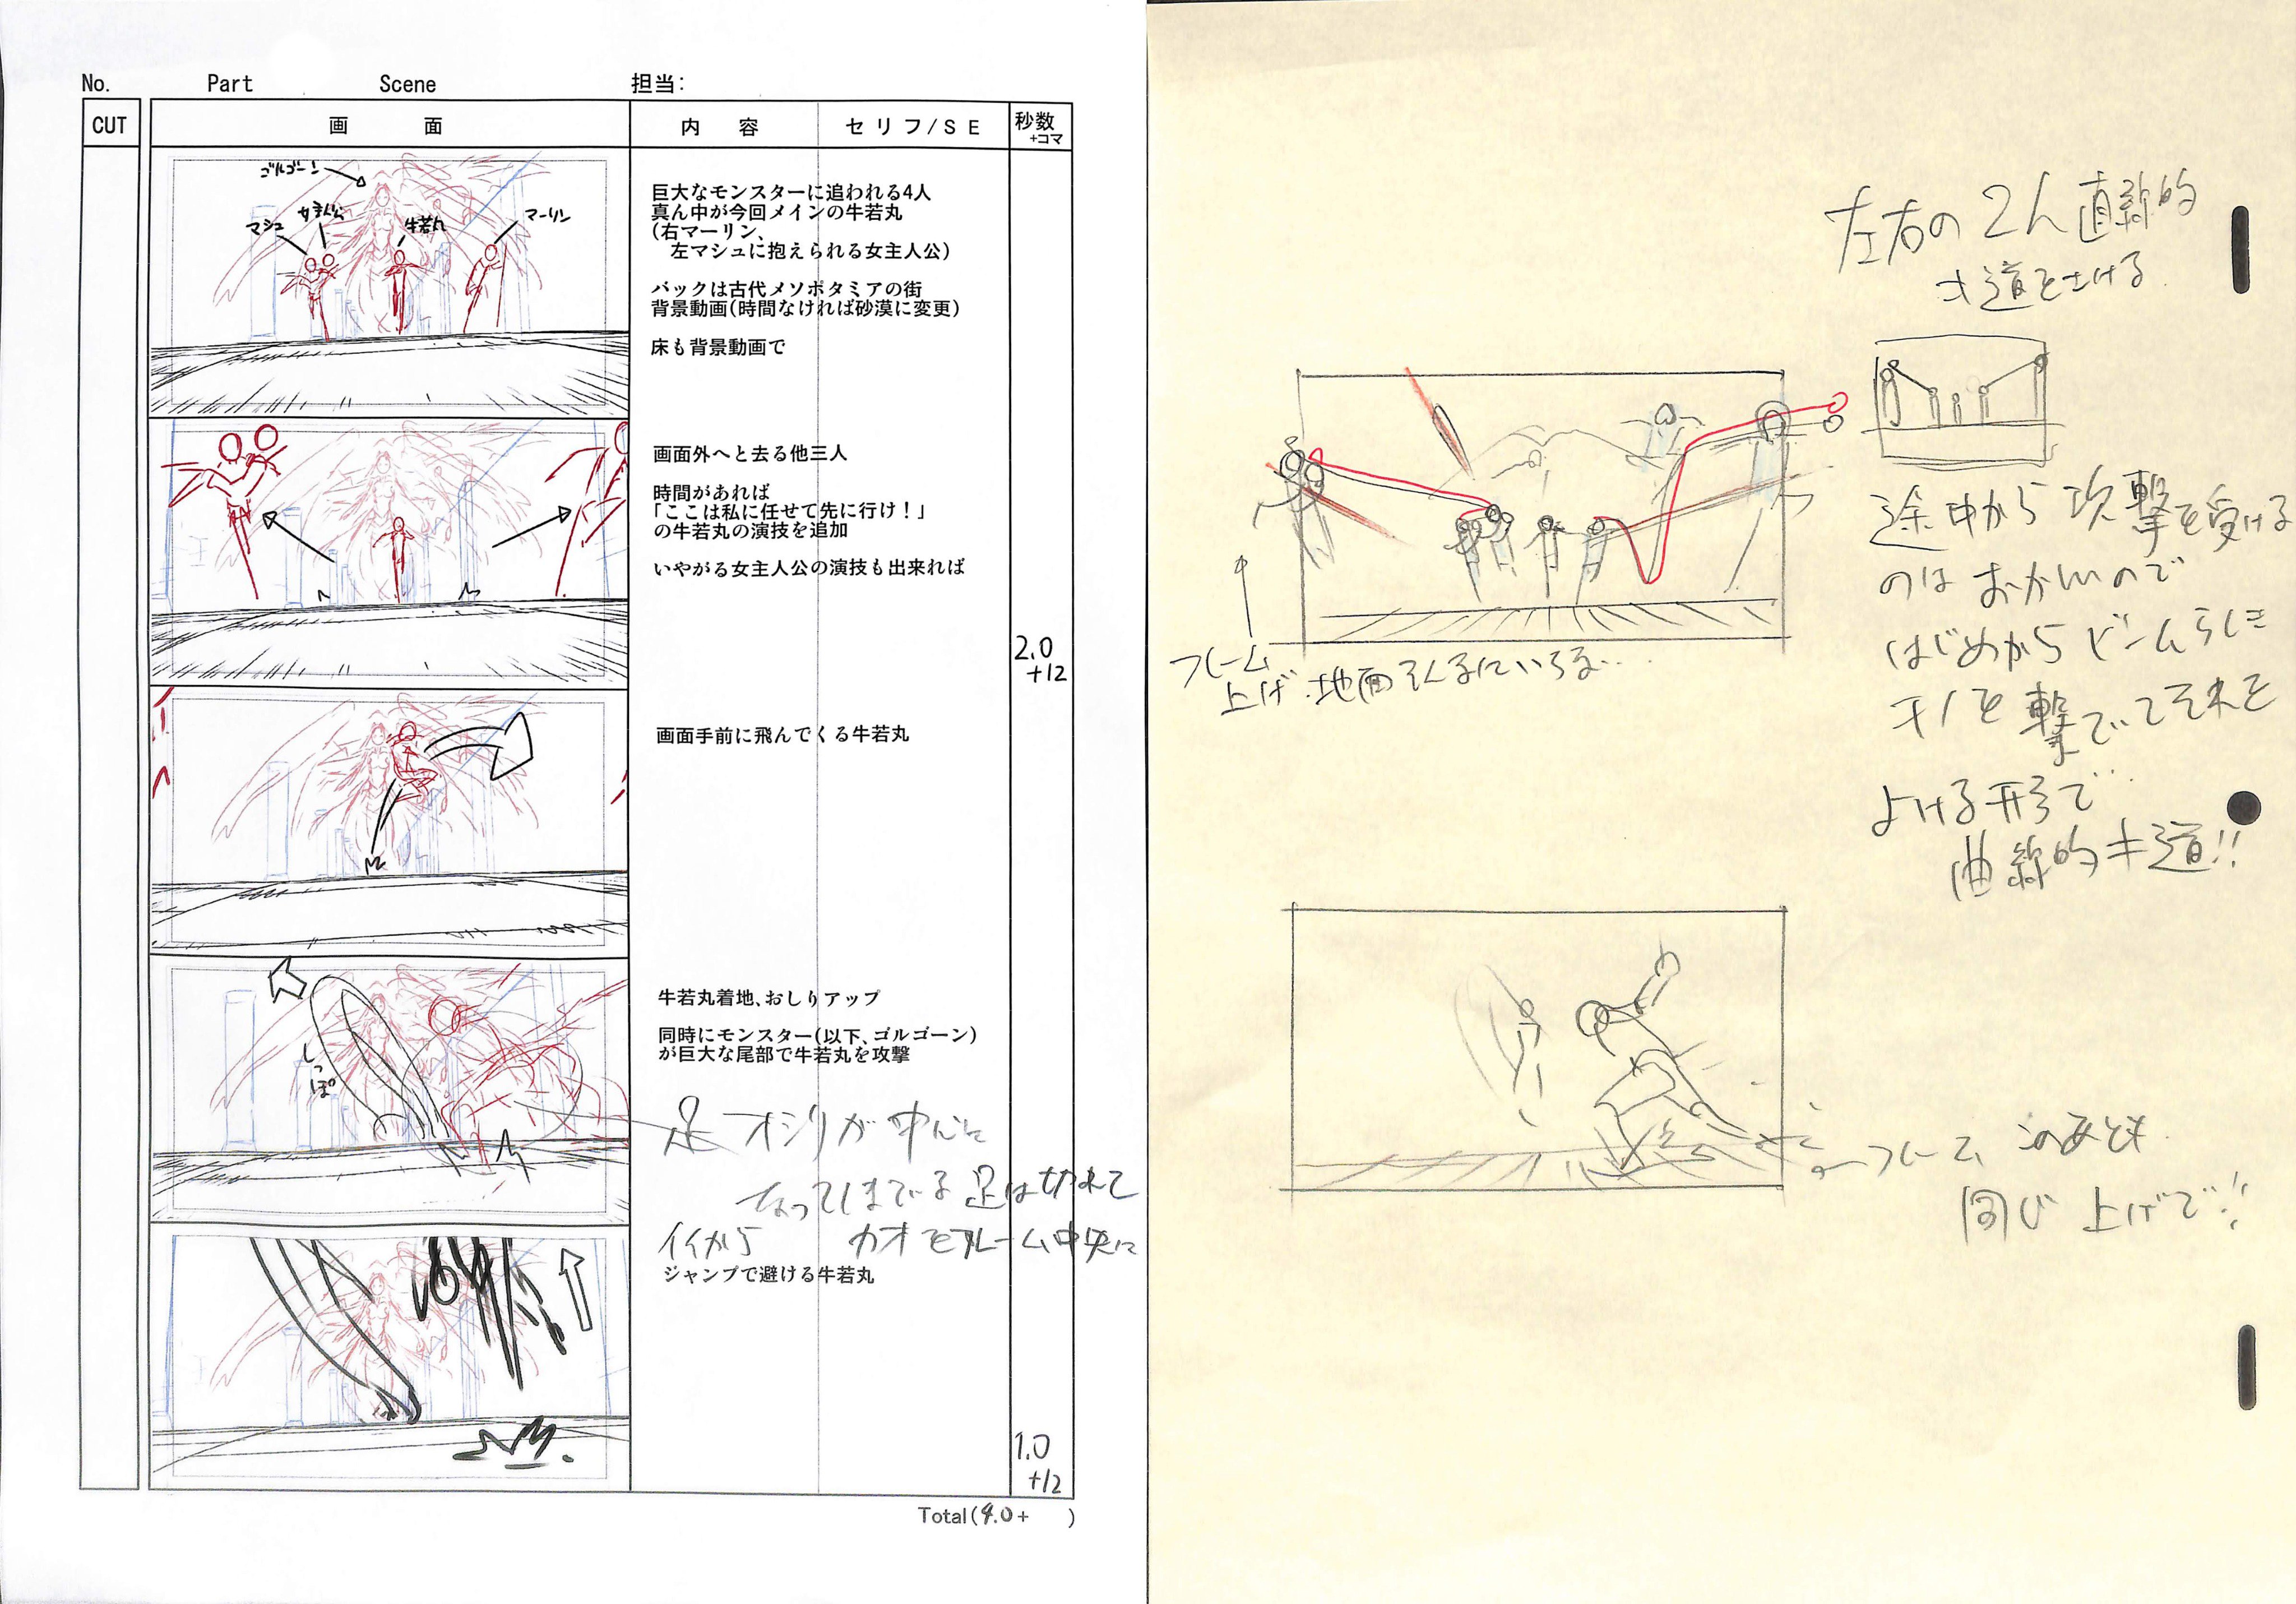 No. Part Scene 担当:
CUT 画面 内容 セリフ/SE 秒数
+コマ
ゴルゴーン
マシュ
女主人公
牛若丸
マーリン
巨大なモンスターに追われる4人
真ん中が今回メインの牛若丸
(右マーリン、
左マシュに抱えられる女主人公)
バックは古代メソポタミアの街
背景動画(時間なければ砂漠に変更)
床も背景動画で
画面外へと去る他三人
時間があれば
「ここは私に任せて先に行け!」
の牛若丸の演技を追加
いやがる女主人公の演技も出来れば
2.0
+12
画面手前に飛んでくる牛若丸
しっぽ
牛若丸着地、おしりアップ
同時にモンスター(以下、ゴルゴーン)
が巨大な尾部で牛若丸を攻撃
足 オシリが中心に
なってしまでる 足は切れて
イイから カオをフレーム中央に
ジャンプで避ける牛若丸
1.0
+12
Total(4.0+ )
左右の2人直線的
キ道をさける
途中から攻撃を受ける
のはおかしいので
はじめからビームらしき
モノを撃ってて それを
よける形で…
曲線的キ道!!
フレーム
上げ.地面そんなにいらない…
フレーム このあとも
同じ 上げで!!